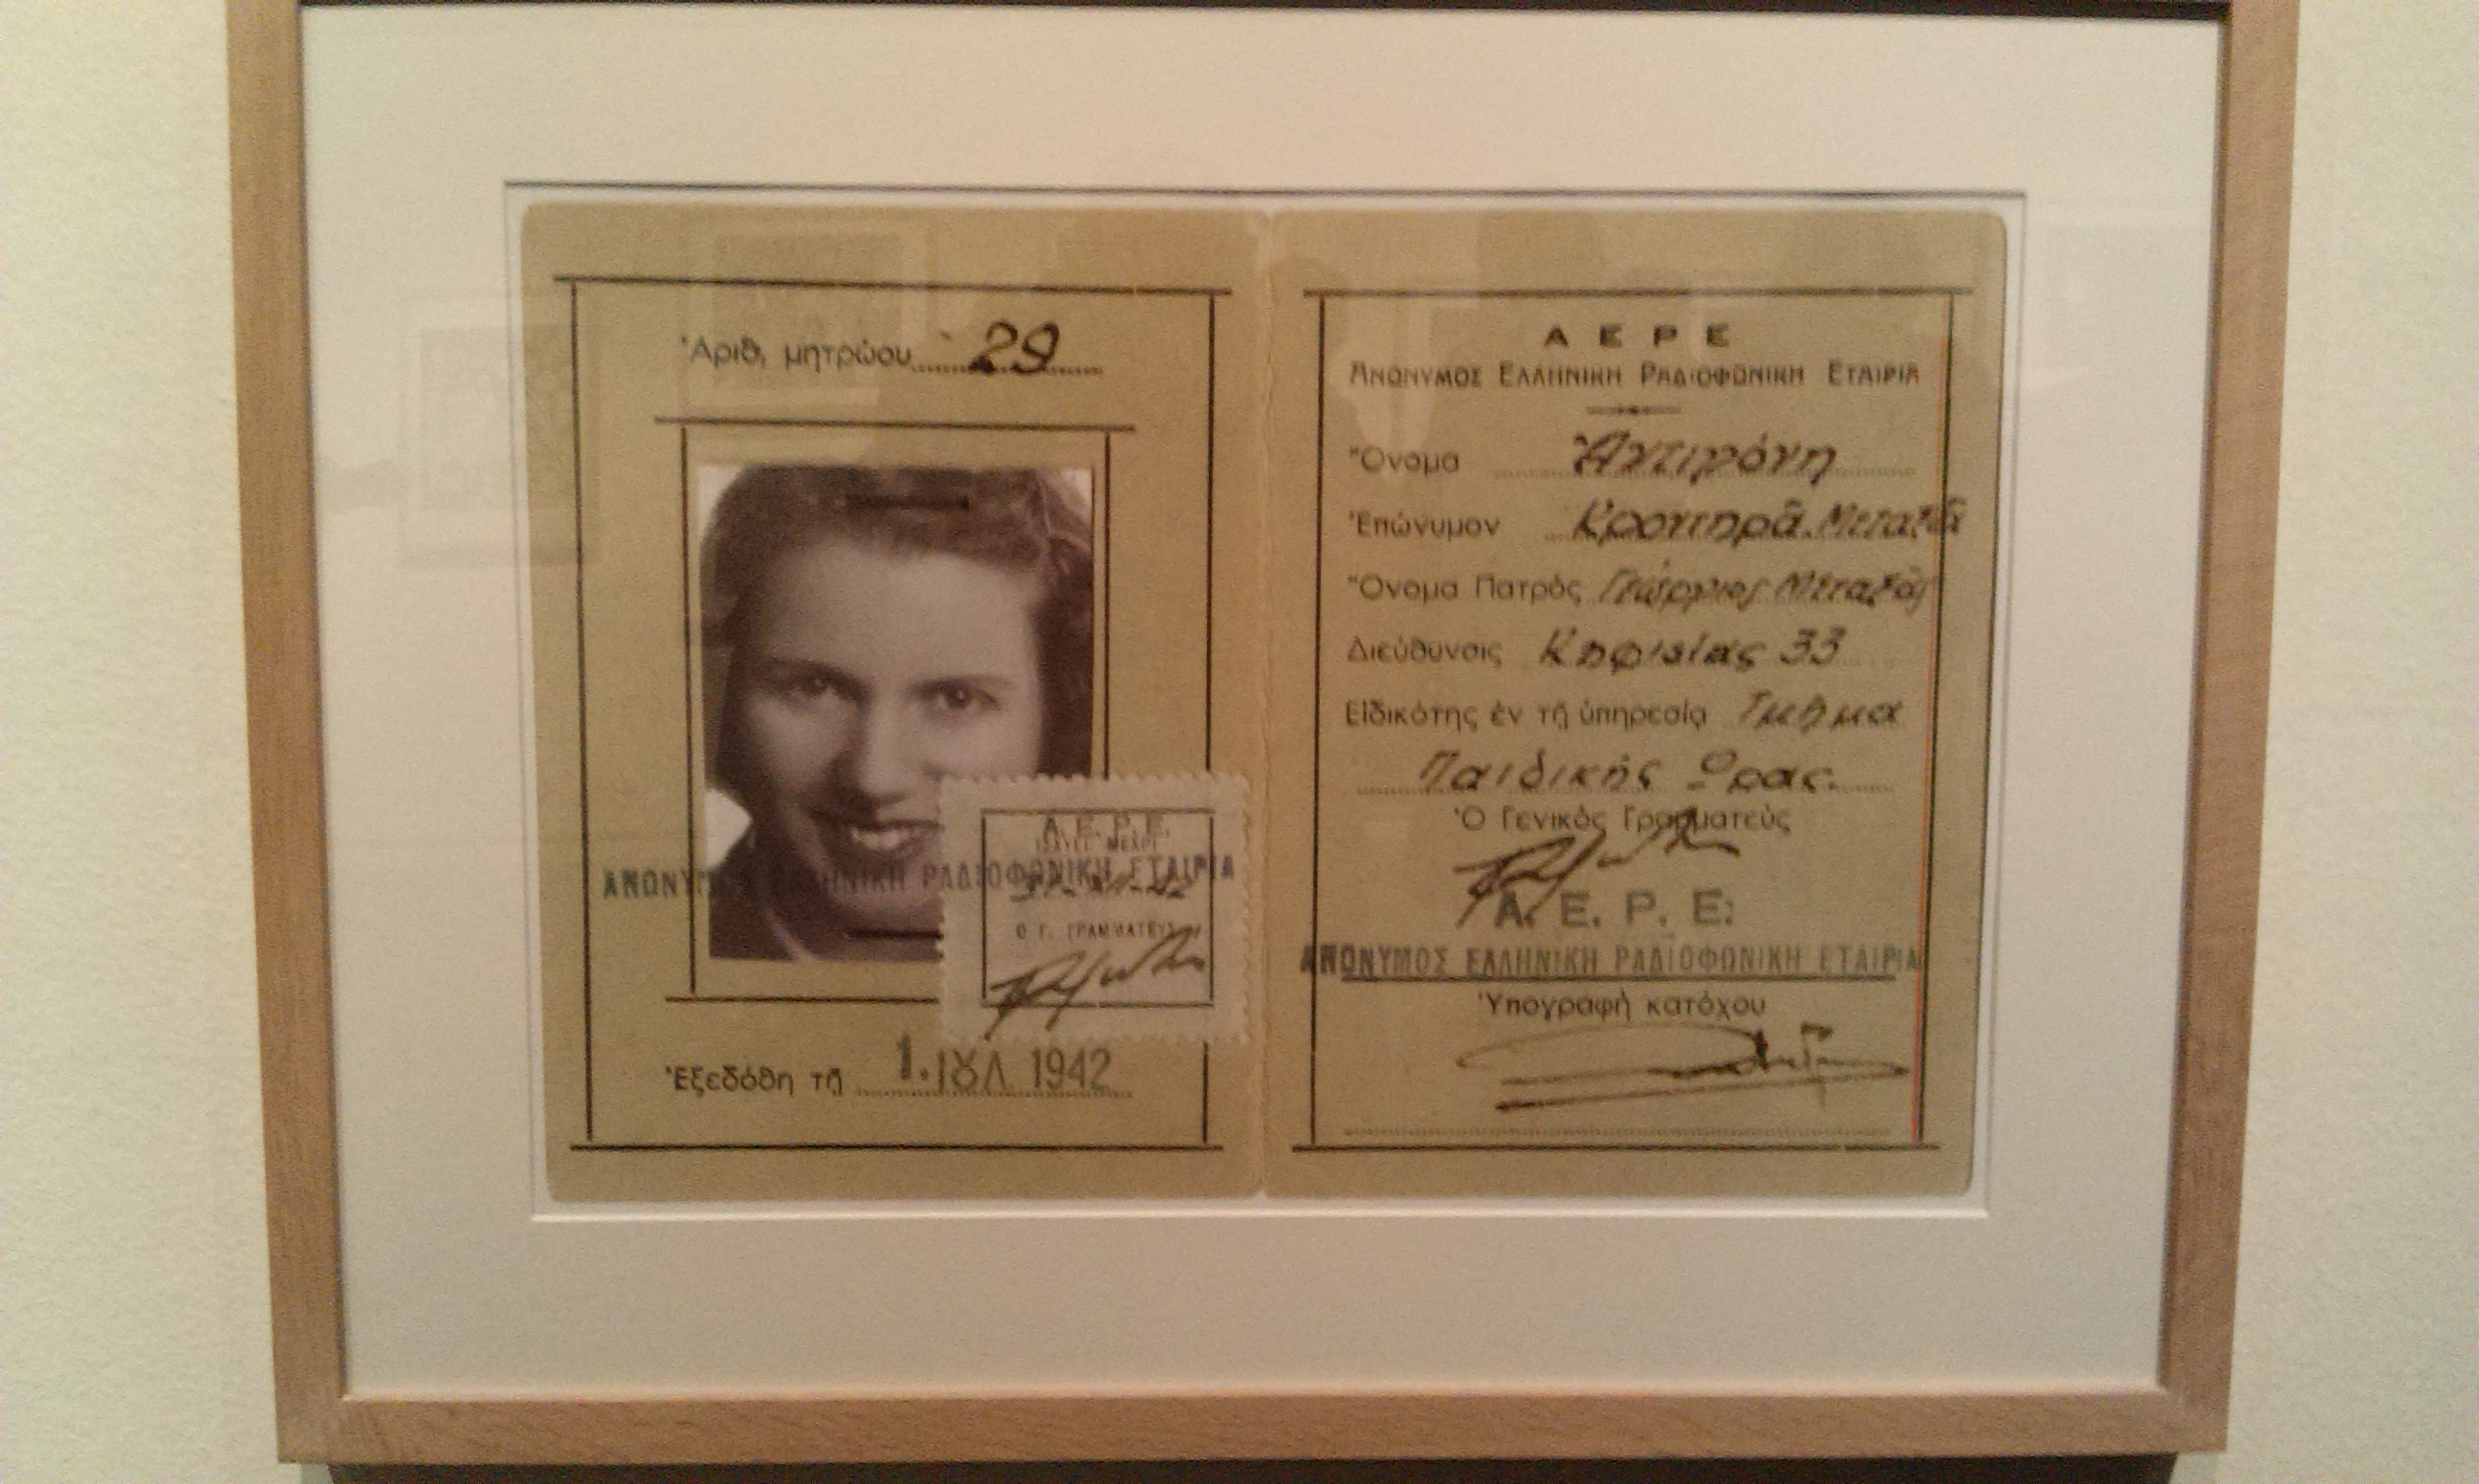 Ἀριθ. μητρώου 29
Α. Ε. Ρ. Ε.
ΙΣΧΥΕΙ ΜΕΧΡΙ
ΑΝΩΝΥΜΟΣ ΕΛΛΗΝΙΚΗ ΡΑΔΙΟΦΩΝΙΚΗ ΕΤΑΙΡΙΑ
Ο Γ. ΓΡΑΜΜΑΤΕΥΣ
Ἐξεδόθη τῇ 1. ΙΟΥΛ 1942
Α Ε Ρ Ε
ΑΝΩΝΥΜΟΣ ΕΛΛΗΝΙΚΗ ΡΑΔΙΟΦΩΝΙΚΗ ΕΤΑΙΡΙΑ
Ὄνομα Ἀντιγόνη
Ἐπώνυμον Κροντηρᾶ. Μεταξᾶ
Ὄνομα Πατρὸς Γεώργιος Μεταξᾶς
Διεύθυνσις Κηφισίας 33
Εἰδικότης ἐν τῇ ὑπηρεσίᾳ Τμῆμα
Παιδικῆς Ὥρας.
Ὁ Γενικὸς Γραμματεὺς
Α. Ε. Ρ. Ε.
ΑΝΩΝΥΜΟΣ ΕΛΛΗΝΙΚΗ ΡΑΔΙΟΦΩΝΙΚΗ ΕΤΑΙΡΙΑ
Ὑπογραφὴ κατόχου